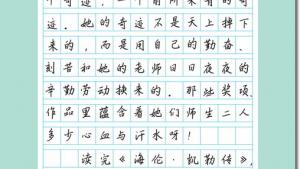 个奇迹，一个前所未有的奇
迹。她的奇迹不是天上掉下
来的，而是用自己的勤奋、
刻苦和她的老师日日夜夜的
辛勤劳动换来的。那些奖项、
作品里蕴含着她们师生二人
多少心血与汗水呀！
读完《海伦·凯勒传》，